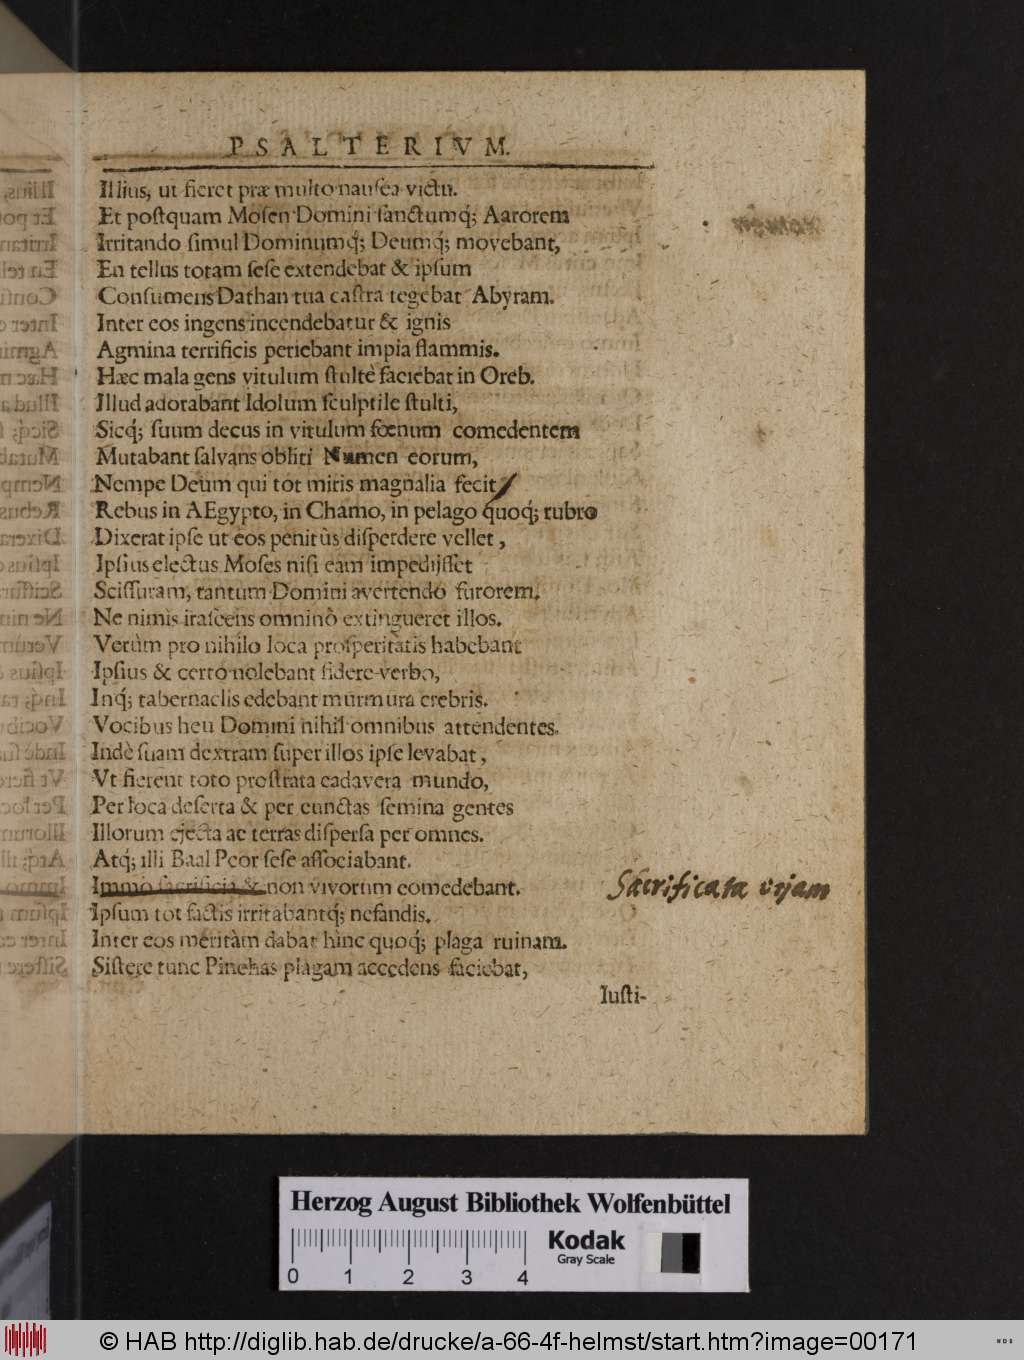 PSALTERIVM.
Illius, ut fieret præ multo nauſea victu.
Et poſtquam Moſen Domini ſanctumq́; Aarorem
Irritando ſimul Dominumq́; Deumq́; movebant,
En tellus totam ſeſe extendebat & ipſum
Conſumens Dathan tua caſtra tegebat Abyram.
Inter eos ingens incendebatur & ignis
Agmina terrificis periebant impia flammis.
Hæc mala gens vitulum ſtultè faciebat in Oreb.
Illud adorabant Idolum ſculptile ſtulti,
Sicq́; ſuum decus in vitulum fœnum comedentem
Mutabant ſalvans obliti Numen eorum,
Nempe Deum qui tot miris magnalia fecit/
Rebus in AEgypto, in Chamo, in pelago quoq́; rubro
Dixerat ipſe ut eos penitùs diſperdere vellet,
Ipſius electus Moſes niſi eam impedijſſet
Sciſſuram, tantum Domini avertendo furorem.
Ne nimis iraſcens omninò extingueret illos.
Verùm pro nihilo loca proſperitatis habebant
Ipſius & certò nolebant fidere verbo,
Inq́; tabernaclis edebant murmura crebris.
Vocibus heu Domini nihil omnibus attendentes.
Indè ſuam dextram ſuper illos ipſe levabat,
Vt fierent toto proſtrata cadavera mundo,
Per loca deſerta & per cunctas ſemina gentes
Illorum ejecta ac terras diſperſa per omnes.
Atq́; illi Baal Peor ſeſe aſſociabant.
Immo ſacrificia & non vivorum comedebant. Sacrificata
Ipſum tot factis irritabantq́; nefandis.
Inter eos meritàm dabat hinc quoq́; plaga ruinam.
Siſtere tunc Pinehas plagam accedens faciebat,
Iuſti-
Herzog August Bibliothek Wolfenbüttel
0 1 2 3 4
Kodak
Gray Scale
© HAB http://diglib.hab.de/drucke/a-66-4f-helmst/start.htm?image=00171